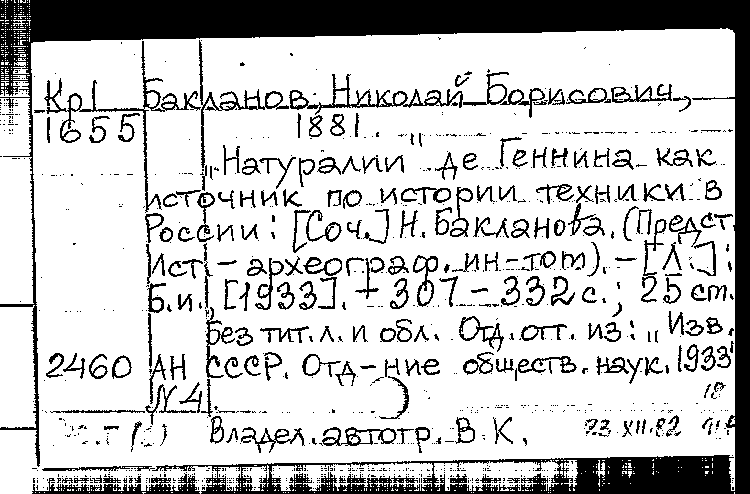 Кр1 Бакланов, Николай Борисович,
1655 1881.
„Натуралии" де Геннина как
источник по истории техники в
России: [Соч.] Н. Бакланова. (Предст.
Ист.-археограф. ин-том). - [Л.]:
Б.и., [1933]. - 307-332 с.; 25 см.
Без тит. л. и обл. Отд. отт. из: „Изв.
2460 АН СССР. Отд-ние обществ. наук. 1933
N 4. 18
Владел. автогр. В. К. 23 XII.82